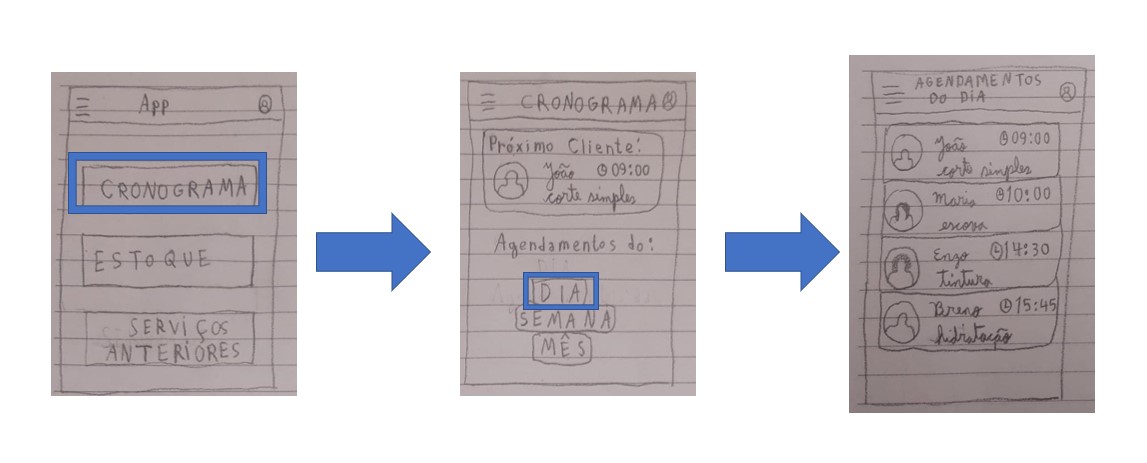 App
CRONOGRAMA
ESTOQUE
SERVIÇOS
ANTERIORES
CRONOGRAMA
Próximo Cliente:
João 09:00
corte simples
Agendamentos do:
DIA
SEMANA
MÊS
AGENDAMENTOS
DO DIA
João 09:00
corte simples
Maria 10:00
escova
Enzo 14:30
tintura
Breno 15:45
hidratação